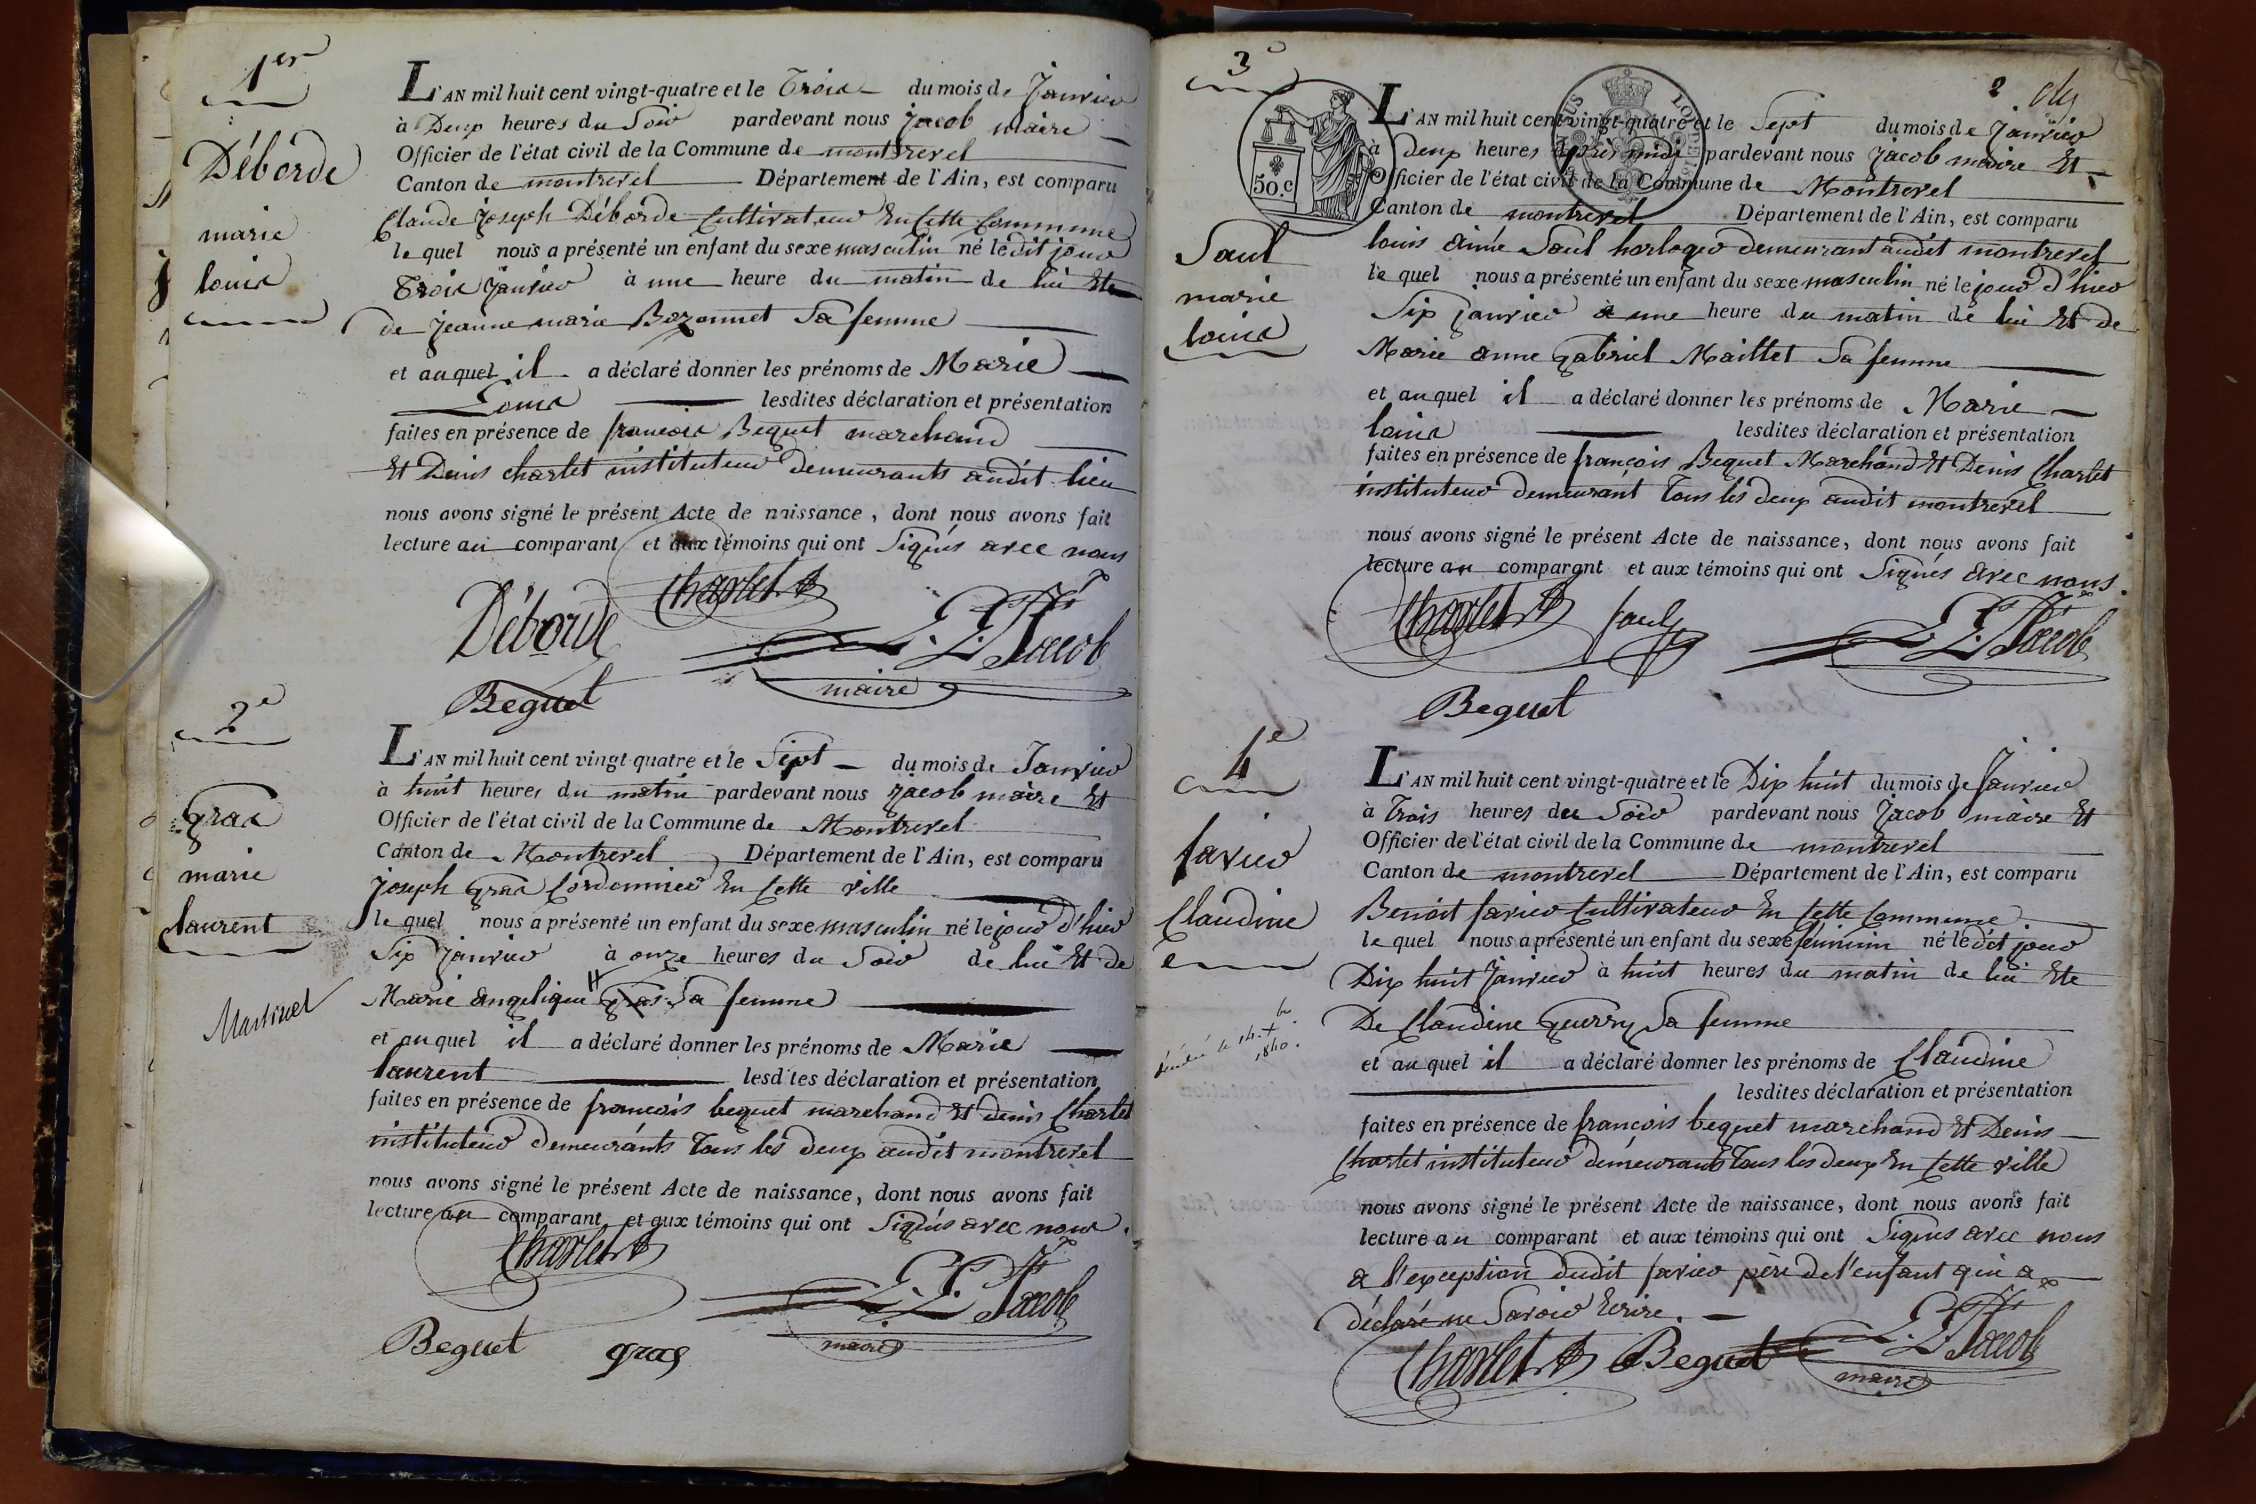 1er
Déborde
marie
louis
L'AN mil huit cent vingt-quatre et le Trois du mois de Janvier
à Deux heures du Soir pardevant nous Jacob maire
Officier de l'état civil de la Commune de montrevel
Canton de montrevel Département de l'Ain, est comparu
Claude joseph Déborde Cultivateur En Cette Commune
le quel nous a présenté un enfant du sexe masculin né le dit jour
Trois janvier à une heure du matin de lui Et
de jeanne marie Bozonnet Sa femme
et au quel il a déclaré donner les prénoms de Marie
Louis lesdites déclaration et présentation
faites en présence de françois Bequet marchand
Et Denis charlet instituteur demeurants audit lieu
nous avons signé le présent Acte de naissance, dont nous avons fait
lecture au comparant et aux témoins qui ont Signés avec nous
Déborde Charlet Jacob
maire
Beguet
2e
Gras
marie
laurent
Martinet
L'AN mil huit cent vingt quatre et le Sept du mois de Janvier
à huit heures du matin pardevant nous jacob maire Et
Officier de l'état civil de la Commune de Montrevel
Canton de Montrevel Département de l'Ain, est comparu
joseph Gras Cordonnier En Cette ville
le quel nous a présenté un enfant du sexe masculin né le jour d'hier
Six janvier à onze heures du Soir de lui Et de
Marie angelique Gras Sa femme
et au quel il a déclaré donner les prénoms de Marie
laurent lesdites déclaration et présentation
faites en présence de françois bequet marchand Et denis Charlet
instituteur demeurants Tous les deux audit montrevel
nous avons signé le présent Acte de naissance, dont nous avons fait
lecture au comparant et aux témoins qui ont Signés avec nous.
Charlet Jacob
maire
Beguet gras
2
3e
50.c
Saul
marie
louis
L'AN mil huit cent vingt-quatre et le Sept du mois de Janvier
à deux heures après midi pardevant nous Jacob maire Et
Officier de l'état civil de la Commune de Montrevel
Canton de montrevel Département de l'Ain, est comparu
louis aimé Saul horloger demeurant audit montrevel
le quel nous a présenté un enfant du sexe masculin né le jour d'hier
Six janvier à une heure du matin de lui Et de
Marie anne gabriel Maillet Sa femme
et au quel il a déclaré donner les prénoms de Marie
louis lesdites déclaration et présentation
faites en présence de françois Bequet Marchand Et Denis Charlet
instituteur demeurant Tous les deux audit montrevel
nous avons signé le présent Acte de naissance, dont nous avons fait
lecture au comparant et aux témoins qui ont Signés avec nous.
Charlet Saul Jacob
Beguet
4e
favier
Claudine
L'AN mil huit cent vingt-quatre et le Dix huit du mois de Janvier
à Trois heures du Soir pardevant nous Jacob maire Et
Officier de l'état civil de la Commune de montrevel
Canton de montrevel Département de l'Ain, est comparu
Benoit favier Cultivateur En Cette Commune
le quel nous a présenté un enfant du sexe féminin né le dit jour
Dix huit Janvier à huit heures du matin de lui Et
De Claudine Guerry Sa femme
et au quel il a déclaré donner les prénoms de Claudine
lesdites déclaration et présentation
faites en présence de françois bequet marchand Et Denis
Charlet instituteur demeurants Tous les deux En Cette ville
nous avons signé le présent Acte de naissance, dont nous avons fait
lecture au comparant et aux témoins qui ont Signés avec nous
a l'exception dudit favier père de l'enfant qui a
déclaré ne Savoir Ecrire.
Charlet Beguet Jacob
maire
1840.